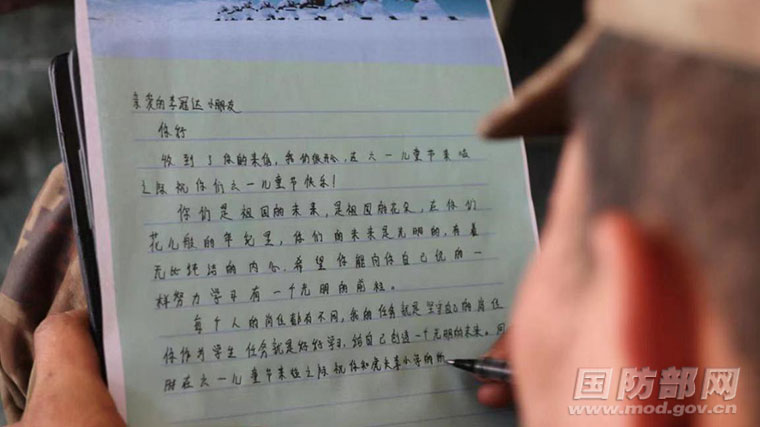 亲爱的李冠达小朋友
你好
收到了你的来信，我们很开心，在六一儿童节来临
之际祝你们六一儿童节快乐！
你们是祖国的未来，是祖国的花朵，在你们
花儿般的年纪里，你们的未来是光明的，有着
无比纯洁的内心，希望你能向你自己说的一
样努力学习有一个光明的前程。
每个人的岗位都有不同，我的任务就是坚守自己的岗位
你作为学生任务就是好好学习，给自己创造一个光明的未来。同
时在六一儿童节来临之际祝你和
小学的所
国防部网
www.mod.gov.cn